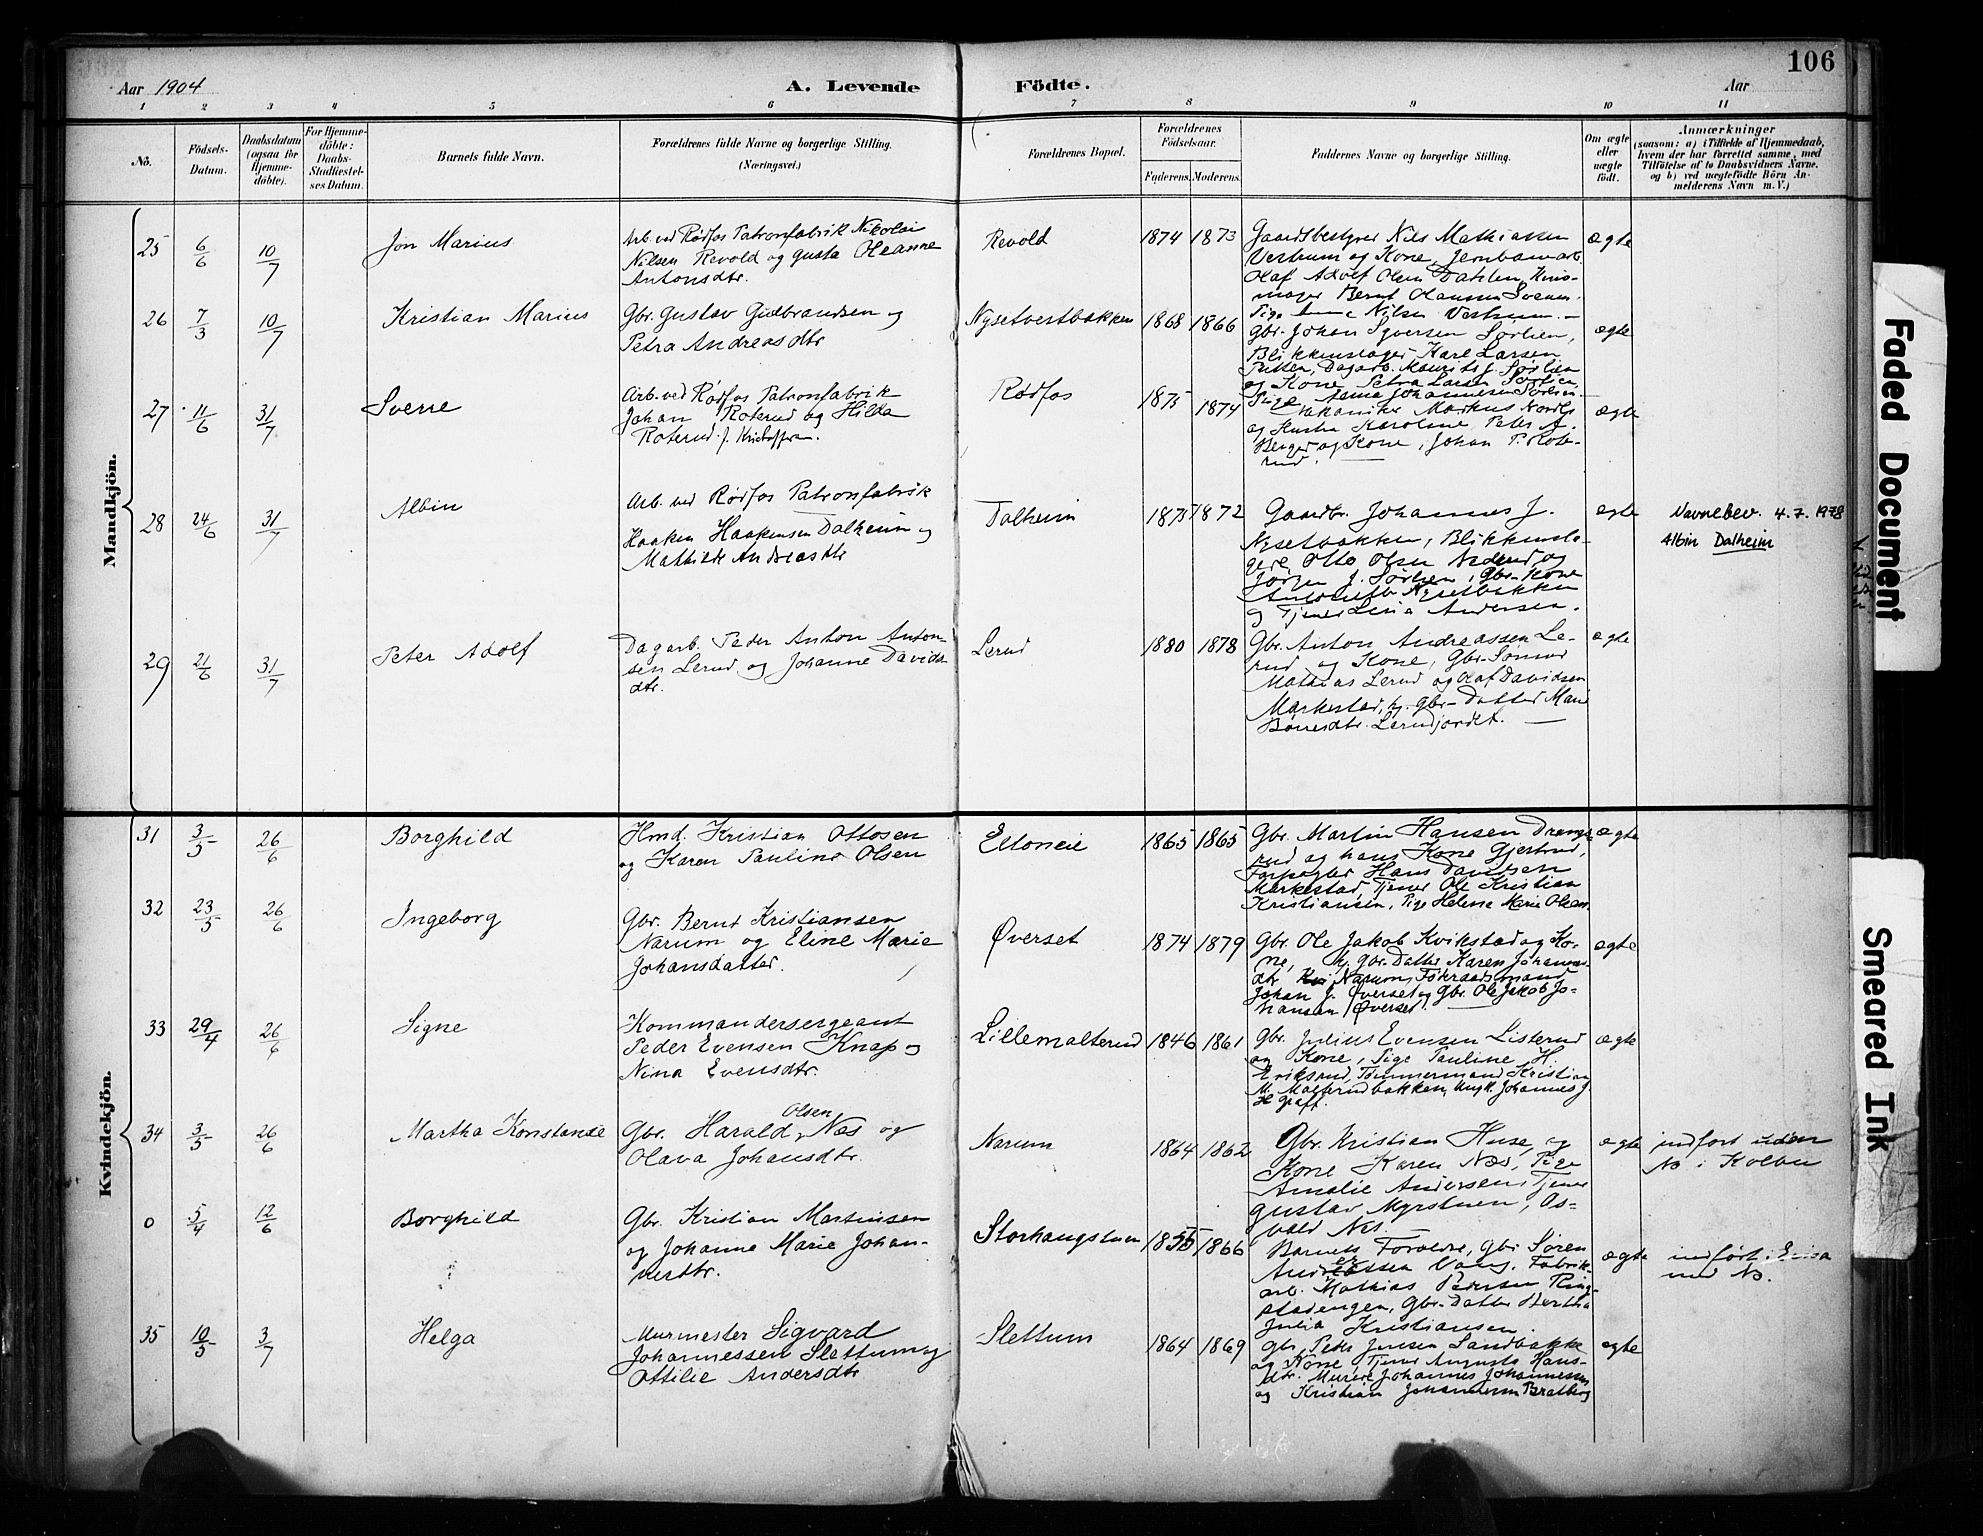 106
Aar 1904
A. Levende
Födte.
Aar
1 2 3 4 5 6 7 8 9 10 11
No.
Födsels-
Datum.
Daabsdatum
(ogsaa for
Hjemme-
döbte).
For Hjemme-
döbte:
Daabs-
Stadfæstel-
ses Datum.
Barnets fulde Navn.
Forældrenes fulde Navne og borgerlige Stilling.
(Næringsvei.)
Forældrenes Bopæl.
Forældrenes
Födselsaar.
Faderens. Moderens.
Faddernes Navne og borgerlige Stilling.
Om ægte
eller
uægte
födt.
Anmærkninger
(saasom: a) i Tilfælde af Hjemmedaab,
hvem der har forrettet samme, med
Tilföielse af to Daabsvidners Navne.
og b) ved uægtefödte Börn An-
melderens Navn m. V.)
Mandkjön.
25 6/6 10/7 Jon Marius
Arb. ved Rødfos Patronfabrik Nikolai
Nilsen Revold og Gusta Oleanne
Antonsdtr.
Revold 1874 1873
Gaardsbestyrer Nils Mathiassen
Vestrum og Kone, Jernbanearb.
Olaf Adolf Olsen Dahlen, Hus-
mager Bernt Olaussen Sveen.
Pige Nilsen Vestrum.
ægte
26 7/3 10/7 Kristian Marius
Gbr. Gustav Gudbrandsen og
Petra Andreasdtr
Nysetvestbakken 1868 1866
Gbr. Johan Syversen Sørlien,
Blikkenslager Karl Larsen
Dagarb. Maurits J. Sørlien
og Kone Petra Larsen Sørlien
Pige Anne Johannesen Sørlien
ægte
27 11/6 31/7 Sverre
Arb. ved Rødfos Patronfabrik
Johan Roterud og Hilda
Roterud f. Kristoffersen.
Rødfos 1875 1874
Mekaniker Markus Nordli
og Hustru Karoline, Peter A.
Berger og Kone, Johan P. Rote-
rud.
ægte
28 24/6 31/7 Albin
Arb. ved Rødfos Patronfabrik
Haaken Haakensen Dalheim og
Mathilde Andreasdtr
Dalheim 1875 1872
Gaardbr. Johannes J.
Nysetbakken, Blikkensla-
ger Otto Olsen Nederud og
Jørgen J. Sørlien, Gbr.-Kone
Nysetbakken
og Tjener Lina Andersen.
ægte
Navnebev. 4.7.1978
Albin Dalheim
29 21/6 31/7 Peter Adolf
Dagarb. Peder Anton Anton-
sen Lerud og Johanne Davids-
dtr.
Lerud 1880 1878
Gbr. Anton Andreassen Le-
rud og Kone, Gbr-Sønner
Mathias Lerud og Olaf Davidsen
Markestad, hj. Gbr-Datter Marie
Børresdtr. Lerudjordet.
ægte
Kvindekjön.
31 3/5 26/6 Borghild
Hmd. Kristian Ottosen
og Karen Pauline Olsen
Eltoneie 1865 1865
Gbr. Martin Hansen Drangs-
rud og hans Kone Gjertrud,
Forpagter Hans Davidsen
Markestad, Tjener Ole Kristian
Kristiansen, Pige Helene Marie Olsen.
ægte
32 23/5 26/6 Ingeborg
Gbr. Bernt Kristiansen
Narum og Eline Marie
Johansdatter.
Øverset 1874 1879
Gbr. Ole Jakob Kvikstad og Ko-
ne, hj. Gbr-Datter Karen Johannes-
dtr. Narum, Føderaadsmand
Johan J. Øverset og Gbr. Ole Jakob Jo-
hansen Øverset.
ægte
33 29/4 26/6 Signe
Kommandersergeant
Peder Evensen Knap og
Nina Evensdtr.
Lillemalterud 1846 1861
Gbr. Julius Evensen Listerud
og Kone, Pige Pauline H.
Eriksrud, Tømmermand Kristian
M. Malterudbakken, Ungk. Johannes J
ægte
34 3/5 26/6 Martha Konstanse
Gbr. Harald Olsen Næs og
Olava Johansdtr.
Narum 1864 1862
Gbr. Kristian Huse og
Kone Karen Næs, Pige
Amalie Andersen, Tjener
Gustav Myrstuen, Os-
vald Næs.
ægte
indført uden
No i Kolbu
0 5/4 12/6 Borghild
Gbr. Kristian Martinsen
og Johanne Marie Johan-
nesdtr.
Storhaugstuen 1855 1866
Barnets Foreldre, Gbr Søren
Andreassen Vang, Fabrik-
arb. Mathias Pedersen Ring-
stadengen, Gbr-Datter Hertha
Julia Kristiansen.
ægte
indført i Eina
med No.
35 10/5 3/7 Helga
Murmester Sigvard
Johannessen Slettum og
Ottilie Andersdtr
Slettum 1864 1869
Gbr. Peter Jensen Sandbakke
og Kone, Tjener Augusta Hans-
dtr. Murere Johannes Johannessen
og Kristian Johannesen Bratberg
ægte
Faded Document
Smeared Ink